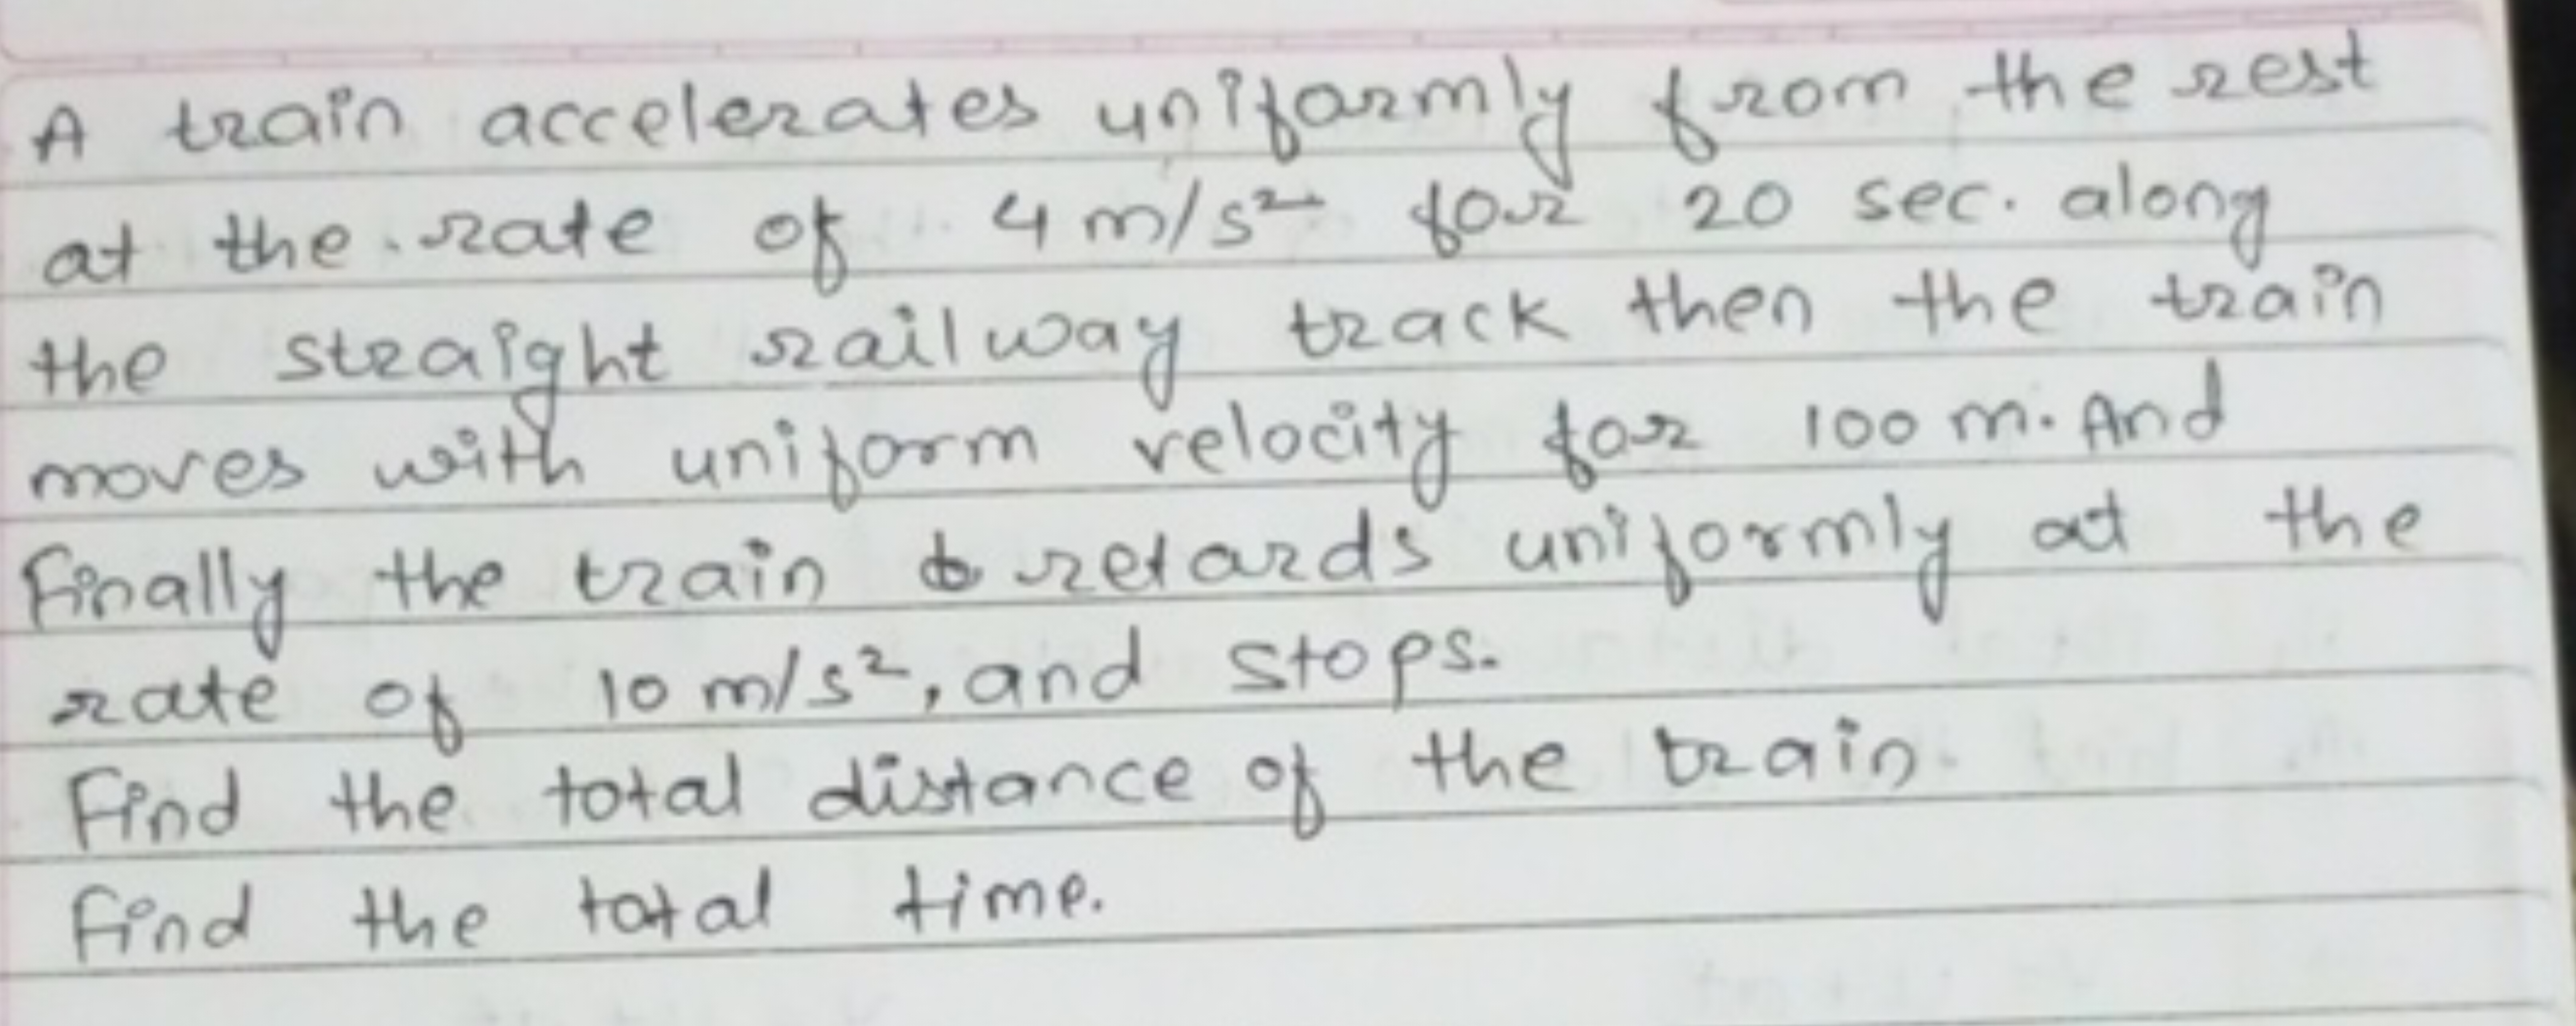 A train accelerates uniformly from the rest
at the rate of 4 m/s² for 20 sec. along
the straight railway track then the train
moves with uniform velocity for 100 m. And
Finally the train retards uniformly at the
rate of 10 m/s², and stops.
Find the total distance of the train.
Find the total time.